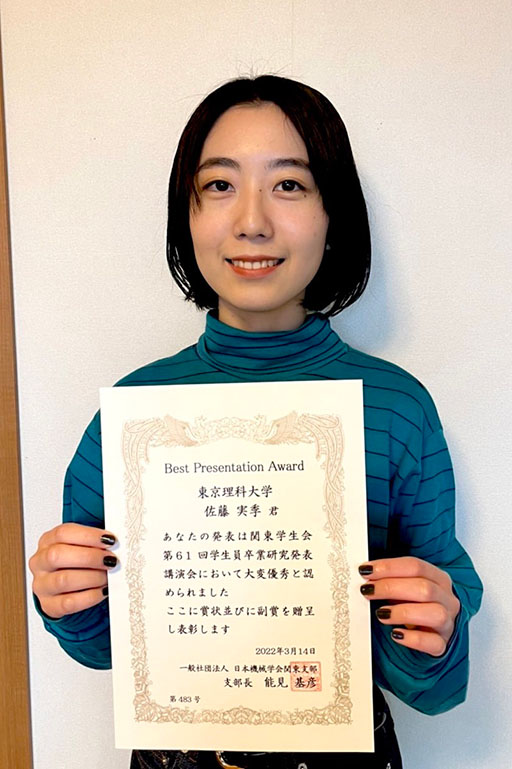 Best Presentation Award
東京理科大学
佐藤 実季 君
あなたの発表は関東学生会
第61回学生員卒業研究発表
講演会において大変優秀と認
められました
ここに賞状並びに副賞を贈呈
し表彰します
2022年3月14日
一般社団法人 日本機械学会関東支部
支部長 能見 基彦
第483号